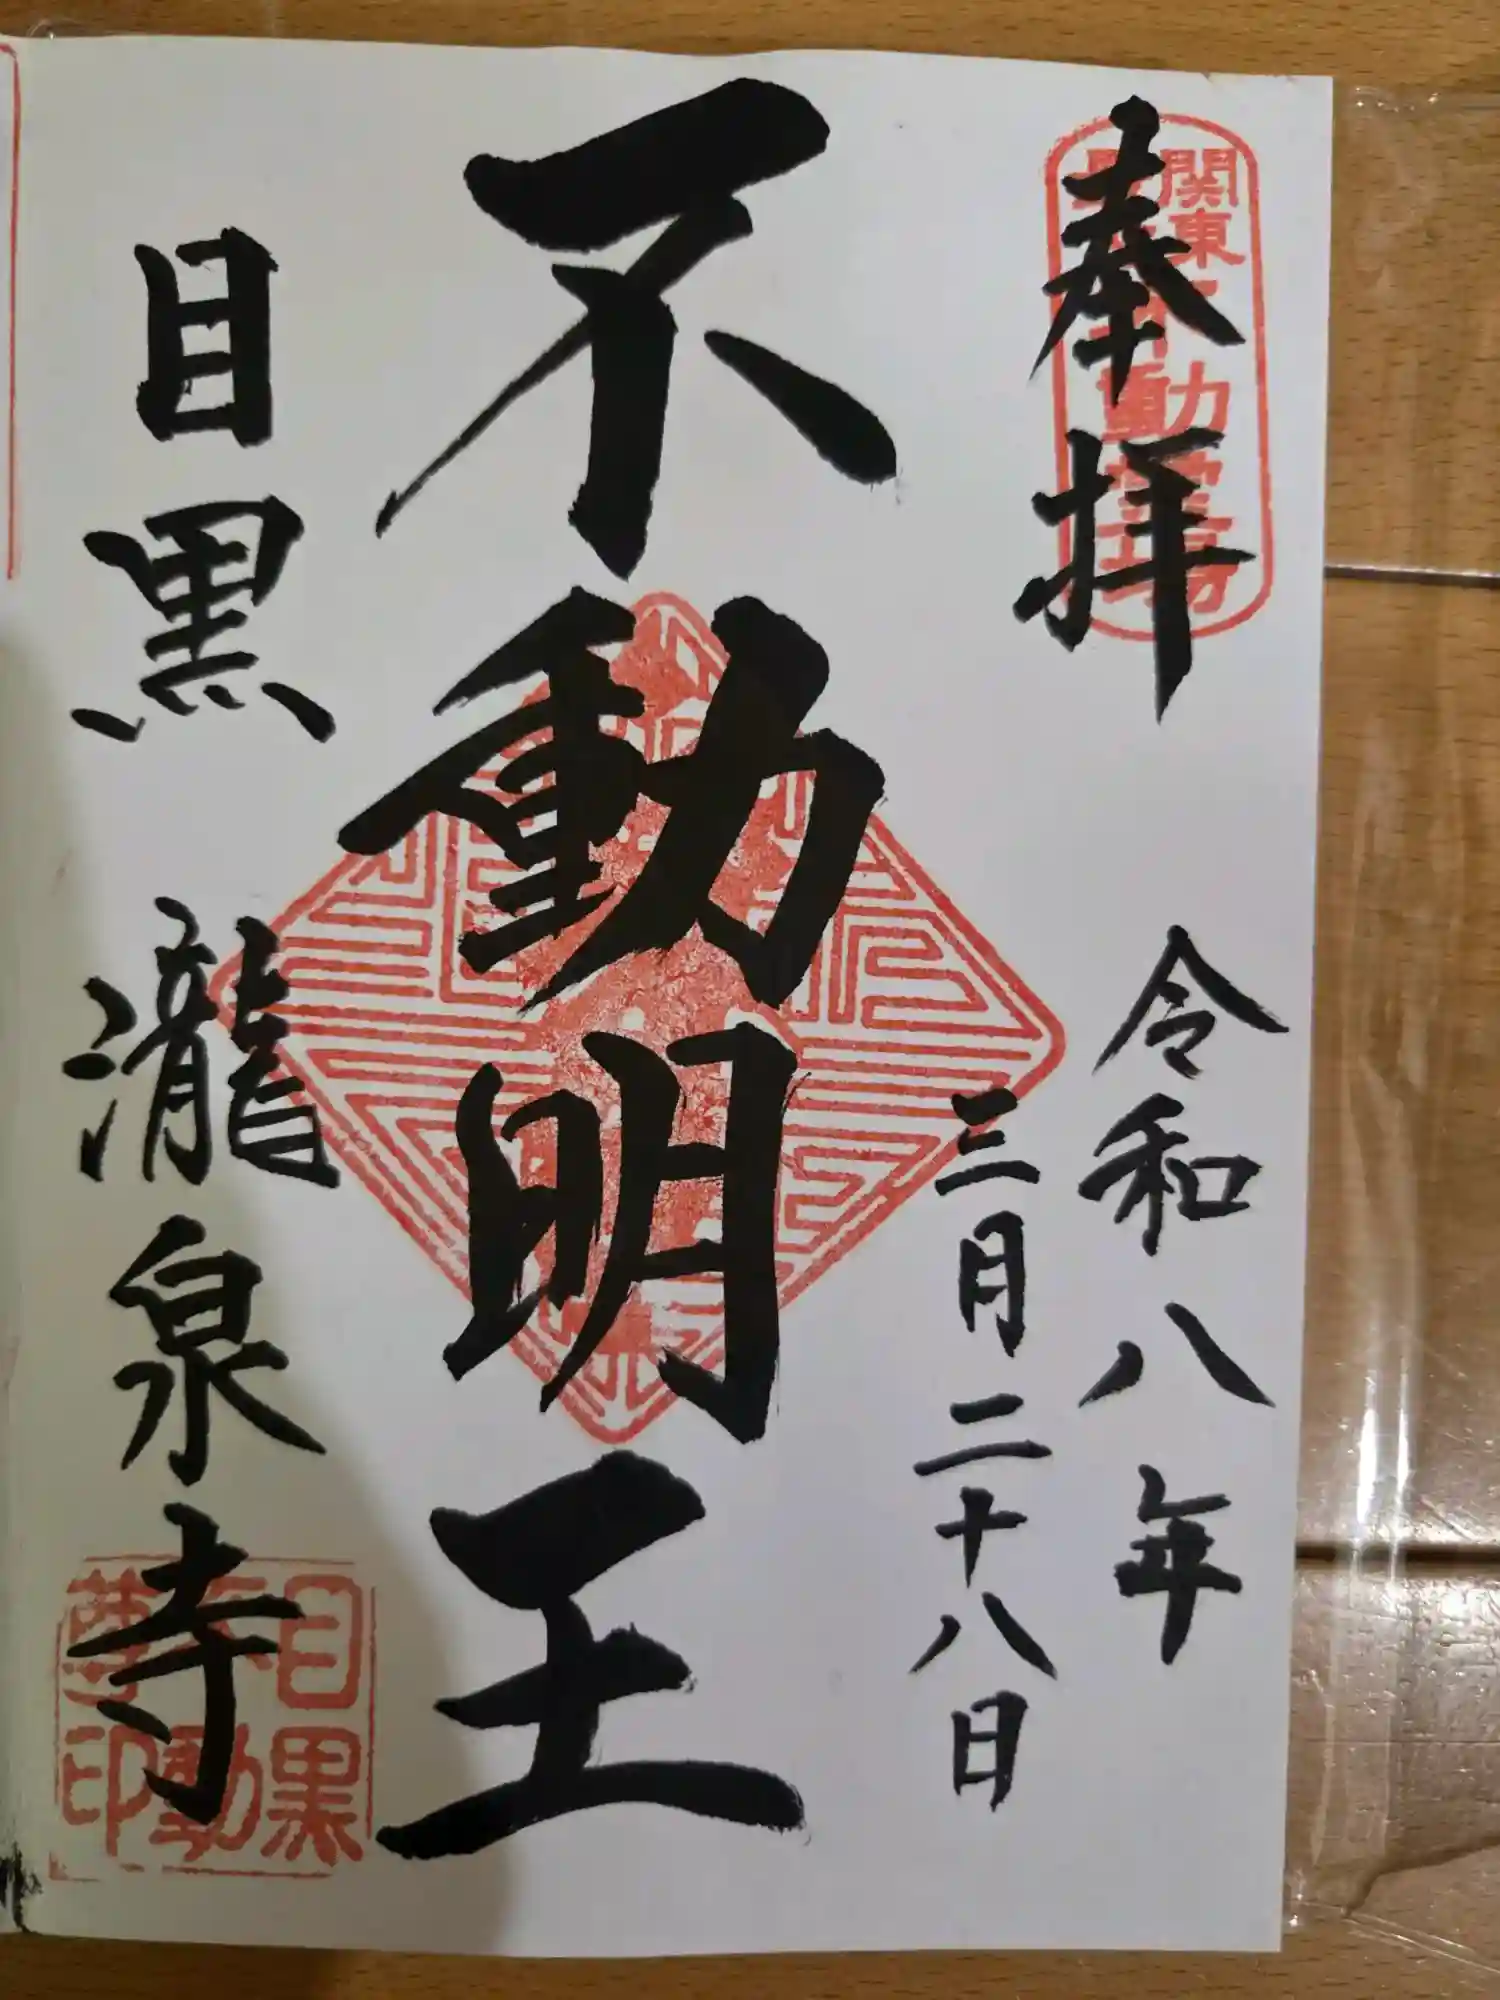 奉拝
令和八年
三月二十八日
不動明王
目黒 瀧泉寺
関東
不動霊場
目黒
不動
尊印